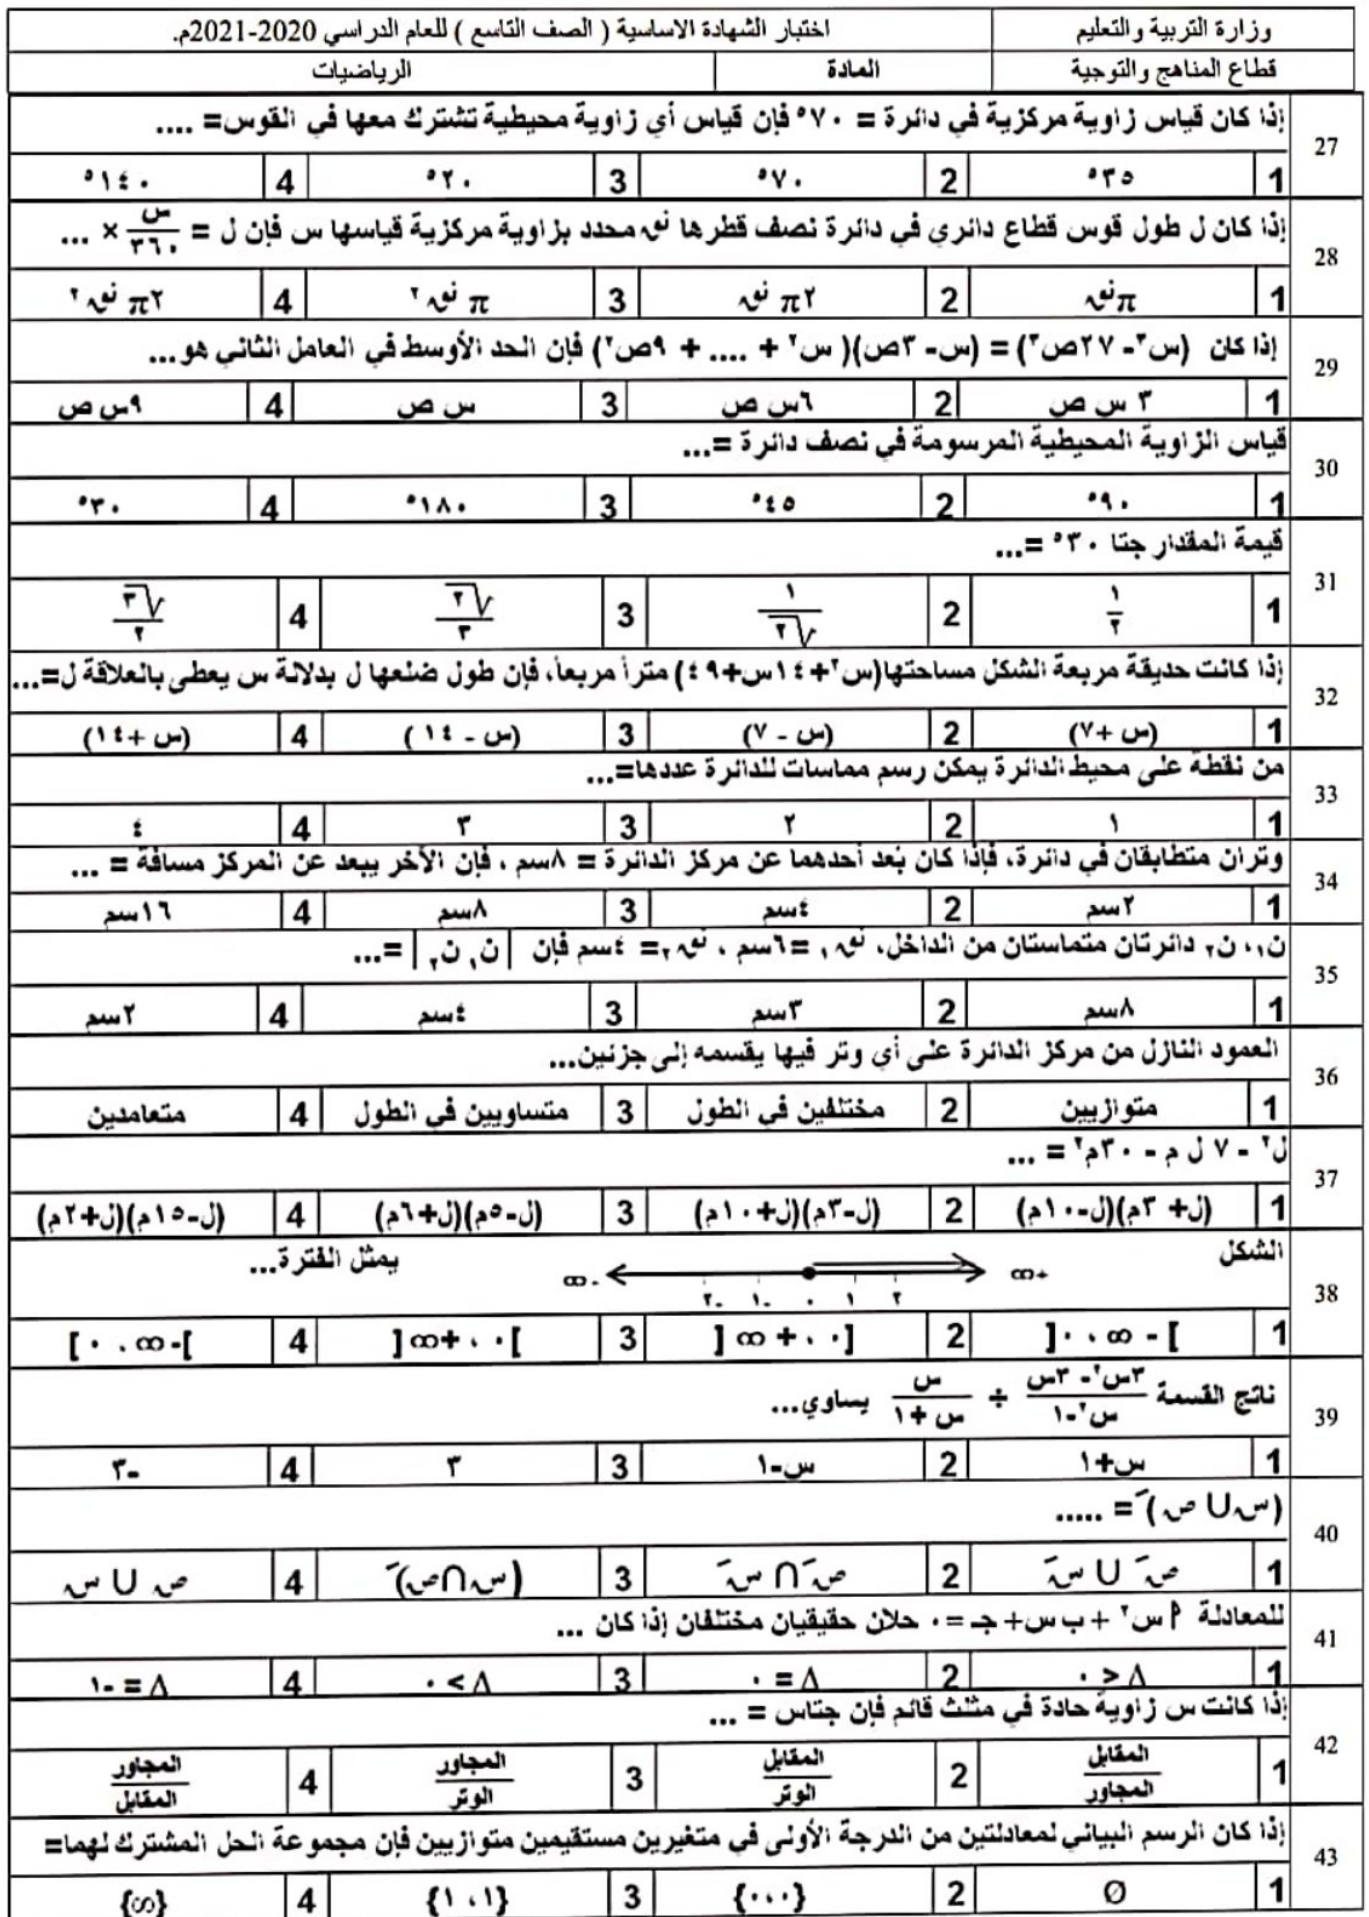 وزارة التربية والتعليم اختبار الشهادة الاساسية ( الصف التاسع ) للعام الدراسي 2020-2021م.
قطاع المناهج والتوجية المادة الرياضيات
27 إذا كان قياس زاوية مركزية في دائرة = ٧٠° فإن قياس أي زاوية محيطية تشترك معها في القوس= ....
1 ٣٥° 2 ٧٠° 3 ٢٠° 4 ١٤٠°
28 إذا كان ل طول قوس قطاع دائري في دائرة نصف قطرها نق محدد بزاوية مركزية قياسها س فإن ل = س/٣٦٠ × ...
1 π نق 2 ٢π نق 3 π نق٢ 4 ٢π نق٢
29 إذا كان (س٣- ٢٧ص٣) = (س- ٣ص)( س٢ + .... + ٩ص٢) فإن الحد الأوسط في العامل الثاني هو...
1 ٣ س ص 2 ٦س ص 3 س ص 4 ٩س ص
30 قياس الزاوية المحيطية المرسومة في نصف دائرة =...
1 ٩٠° 2 ٤٥° 3 ١٨٠° 4 ٣٠°
31 قيمة المقدار جتا ٣٠° =...
1 ١/٢ 2 ١/√٢ 3 √٢/٣ 4 √٣/٢
32 إذا كانت حديقة مربعة الشكل مساحتها(س٢+ ١٤س+٤٩) متراً مربعاً، فإن طول ضلعها ل بدلالة س يعطى بالعلاقة ل=...
1 (س +٧) 2 (س - ٧) 3 (س - ١٤ ) 4 (س +١٤)
33 من نقطة على محيط الدائرة يمكن رسم مماسات للدائرة عددها=...
1 ١ 2 ٢ 3 ٣ 4 ٤
34 وتران متطابقان في دائرة، فإذا كان بُعد أحدهما عن مركز الدائرة = ٨سم ، فإن الآخر يبعد عن المركز مسافة = ...
1 ٢سم 2 ٤سم 3 ٨سم 4 ١٦سم
35 ن١، ن٢ دائرتان متماستان من الداخل، نق١ =٦سم ، نق٢= ٤سم فإن | ن١ ن٢ | =...
1 ٨سم 2 ٣سم 3 ٤سم 4 ٢سم
36 العمود النازل من مركز الدائرة على أي وتر فيها يقسمه إلى جزئين...
1 متوازيين 2 مختلفين في الطول 3 متساويين في الطول 4 متعامدين
37 ل٢ - ٧ ل م - ٣٠م٢ = ...
1 (ل+ ٣م)(ل-١٠م) 2 (ل-٣م)(ل+١٠م) 3 (ل-٥م)(ل+٦م) 4 (ل-١٥م)(ل+٢م)
38 الشكل +∞ -∞ يمثل الفترة...
٢ ١ ٠ -١ -٢
1 ]- ∞ ، ٠[ 2 [٠ ، + ∞ [ 3 ]٠ ، +∞[ 4 ]-∞ ، ٠]
39 ناتج القسمة ٣س٢- ٣س/س٢-١ ÷ س/س +١ يساوي...
1 س+١ 2 س-١ 3 ٣ 4 -٣
40 (س U ص)َ = .....
1 صَ U سَ 2 صَ ∩ سَ 3 (س∩ص)َ 4 ص U س
41 للمعادلة أ س٢ + ب س+ جـ =٠ حلان حقيقيان مختلفان إذا كان ...
1 Δ < ٠ 2 Δ = ٠ 3 Δ > ٠ 4 Δ = -١
42 إذا كانت س زاوية حادة في مثلث قائم فإن جتاس = ...
1 المقابل/المجاور 2 المقابل/الوتر 3 المجاور/الوتر 4 المجاور/المقابل
43 إذا كان الرسم البياني لمعادلتين من الدرجة الأولى في متغيرين مستقيمين متوازيين فإن مجموعة الحل المشترك لهما=
1 Ø 2 {٠،٠} 3 {١ ،١} 4 {∞}